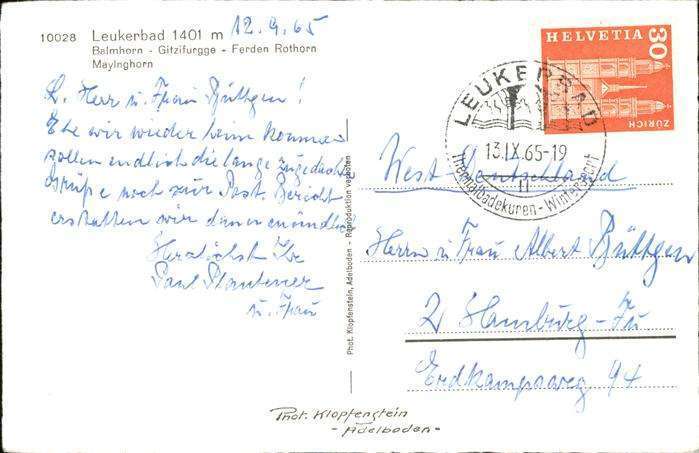 10028 Leukerbad 1401 m 12.9.65
Balmhorn - Gitzifurgge - Ferden Rothorn
Mayinghorn
L. Herr u. Frau Büttgen!
Ehe wir wieder heim kommen
sollen endlich die lange zugedachten
Grüße noch zur Post. Bericht
erstatten wir dann mündlich
Herzlichst Ihr
Paul
u. Frau
Phot. Klopfenstein, Adelboden - Reproduktion verboten
HELVETIA 30
ZÜRICH
LEUKERBAD
13.IX.65-19
11
Thermalbadekuren - Wintersport
West-Deutschland
Herrn u. Frau Albert Büttgen
2 Hamburg-Fu
Erdkampsweg 94
Phot. Klopfenstein
- Adelboden -